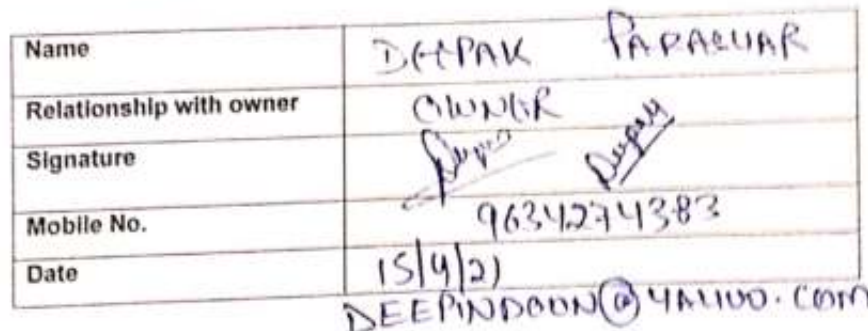 Name DEEPAK PARASHAR
Relationship with owner OWNER
Signature Deepak Deepak
Mobile No. 9634274383
Date 15/4/21
DEEPINDOON@YAHOO.COM